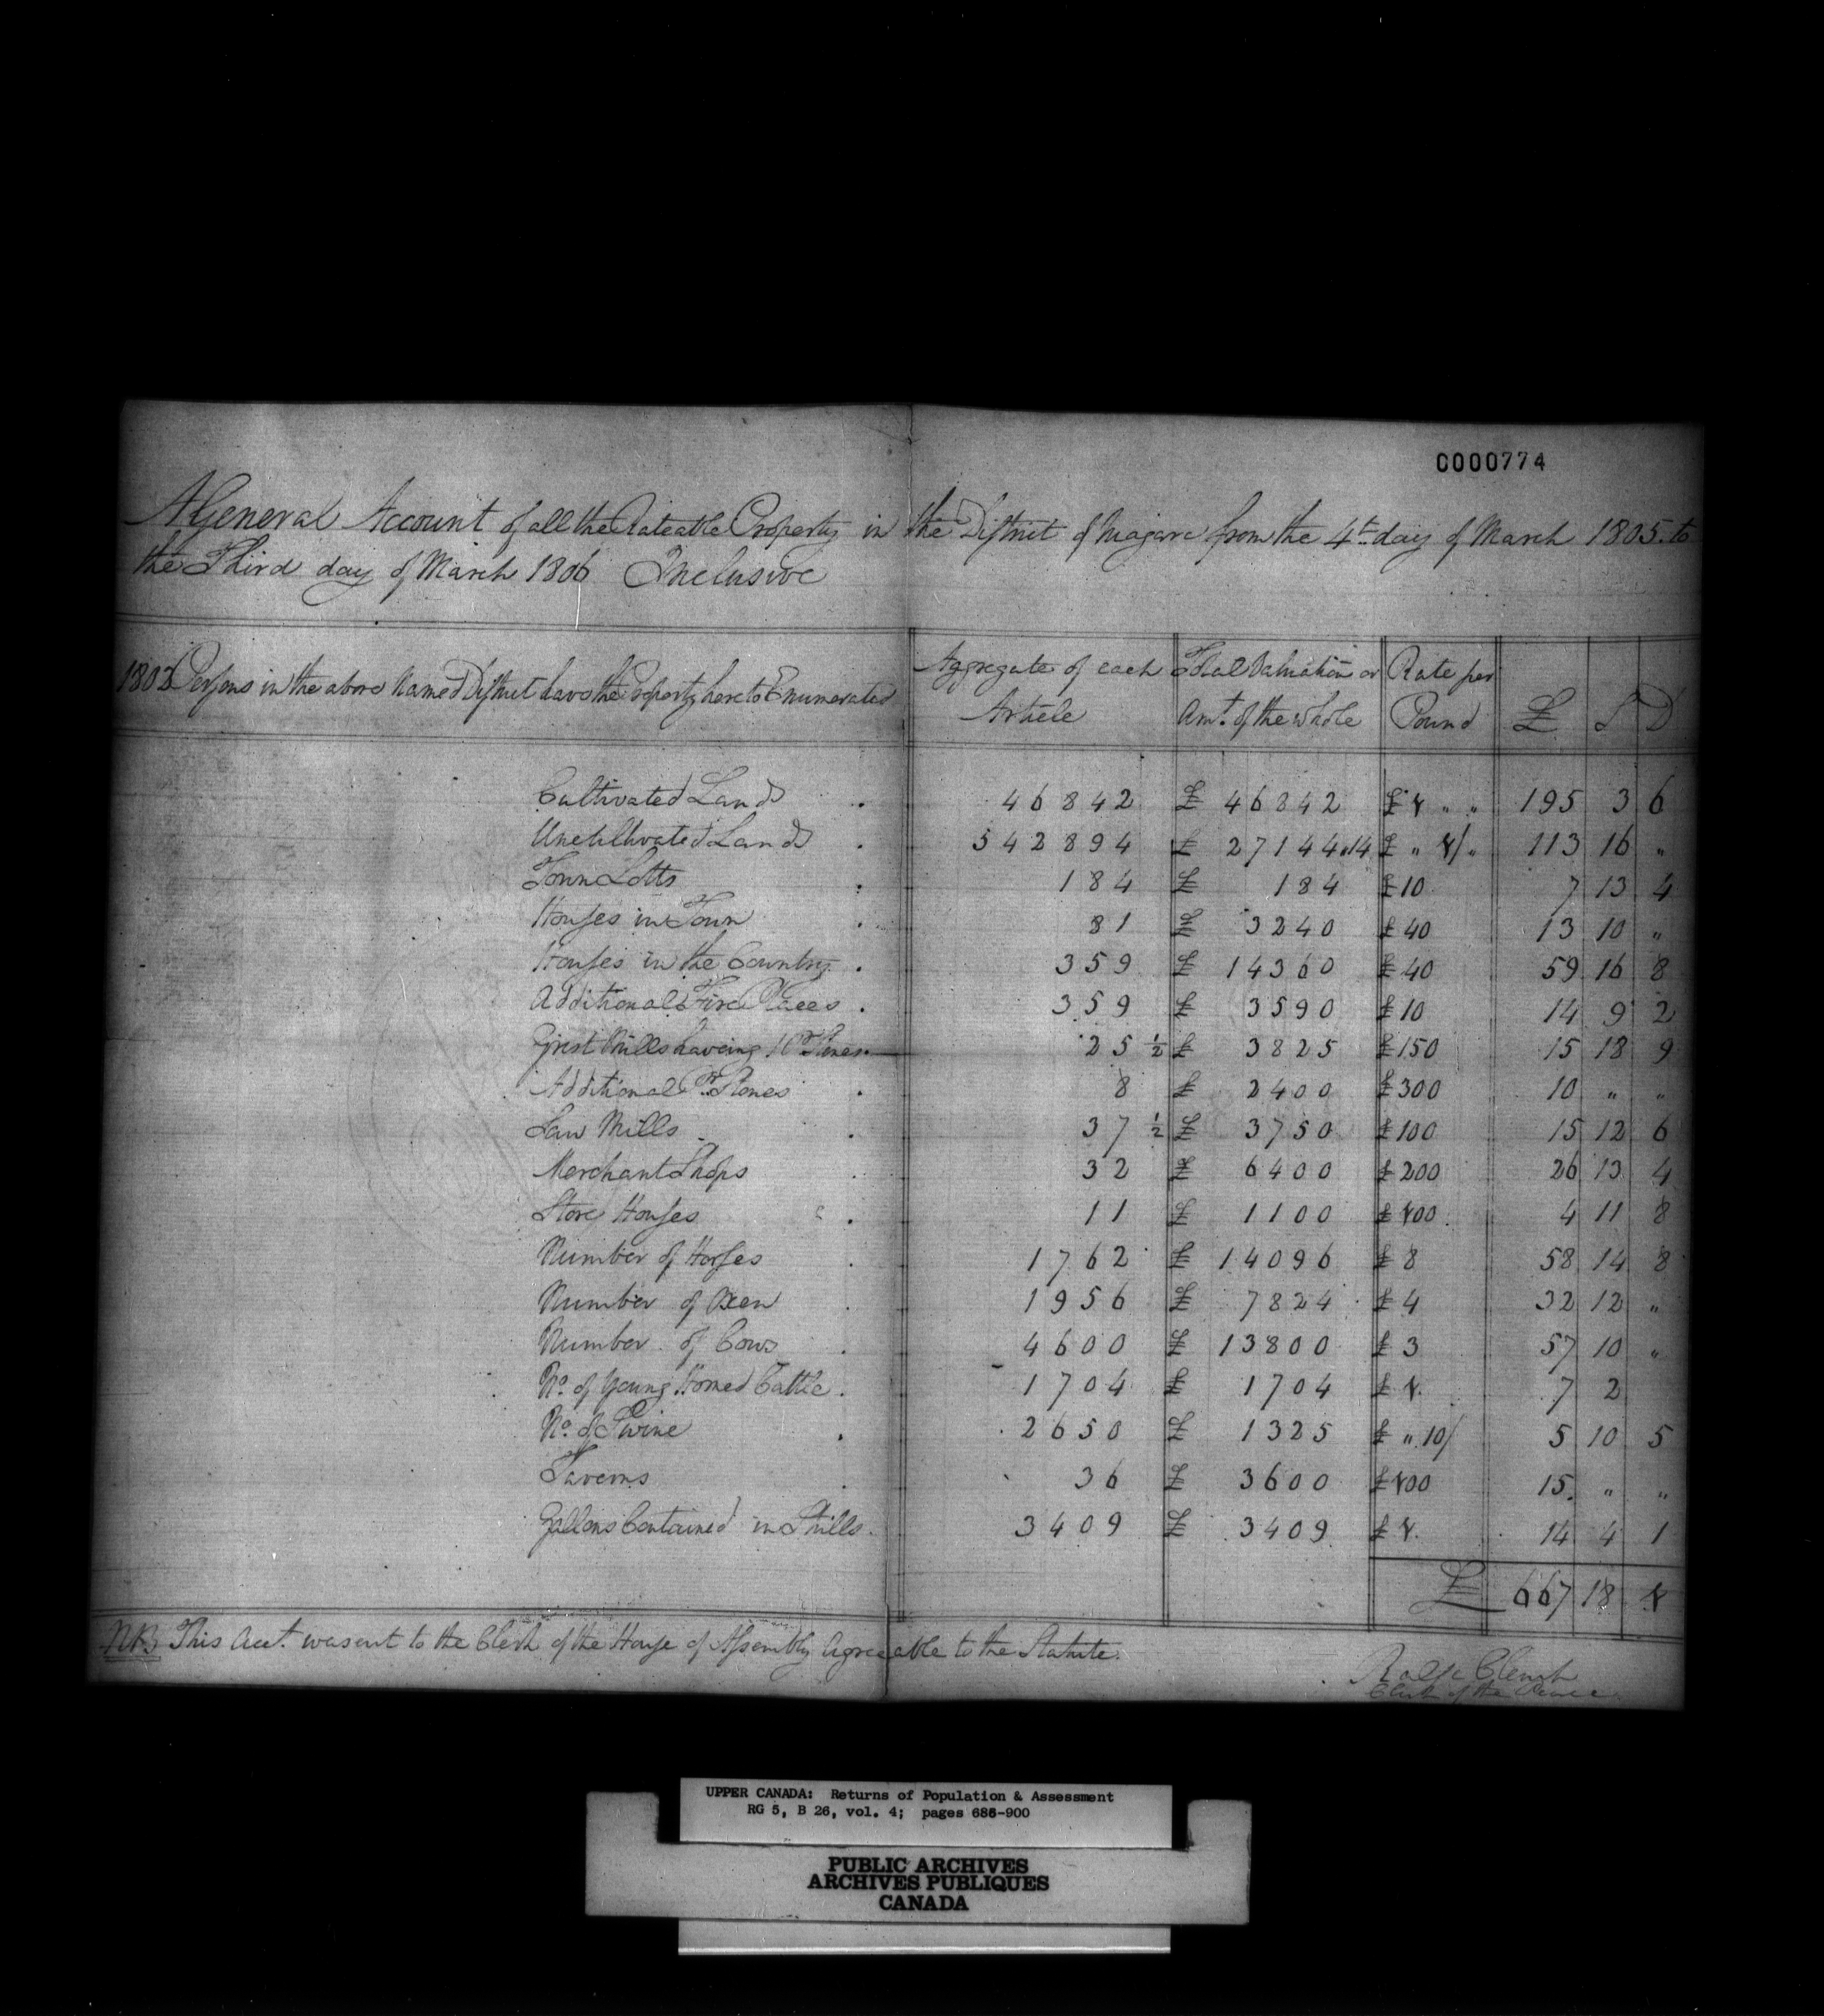 C000774
A General Account of all the Rateable Property in the District of Niagara from the 4th day of March 1805 to
the Third day of March 1806 Inclusive
1802 Persons in the above Named District have the Property hereto Enumerated
Aggregate of each Article
Total Valuation or Amt. of the whole
Rate per Pound
£ S D
Cultivated Lands . 46842 £ 46842 £ 1 " " 195 3 6
Uncultivated Lands . 542894 £ 27144 " 14 £ " 1/ " 113 16 "
Town Lotts : 184 £ 184 £ 10 7 13 4
Houses in Town . 81 £ 3240 £ 40 13 10 "
Houses in the Country . 359 £ 14360 £ 40 59 16 8
Additional Fire Places . 359 £ 3590 £ 10 14 9 2
Grist Mills haveing 1 Pr Stones 25 ½ £ 3825 £ 150 15 18 9
Additional Pr. Stones . 8 £ 2400 £ 300 10 " "
Saw Mills . 37 ½ £ 3750 £ 100 15 12 6
Merchant Shops . 32 £ 6400 £ 200 26 13 4
Store Houses . 11 £ 1100 £ 100 4 11 8
Number of Horses . 1762 £ 14096 £ 8 58 14 8
Number of Oxen . 1956 £ 7824 £ 4 32 12 "
Number of Cows . 4600 £ 13800 £ 3 57 10 "
No. of Young Horned Cattle . 1704 £ 1704 £ 1 7 2
No. of Swine . 2650 £ 1325 £ " 10/ 5 10 5
Taverns . 36 £ 3600 £ 100 15 " "
Gallons Contained in Stills . 3409 £ 3409 £ 1 14 4 1
£ 667 18 1
NB This Acct. was sent to the Clerk of the House of Assembly Agreeable to the Statute.
Ralfe Clench
Clerk of the Peace
UPPER CANADA: Returns of Population & Assessment
RG 5, B 26, vol. 4; pages 686-900
PUBLIC ARCHIVES
ARCHIVES PUBLIQUES
CANADA